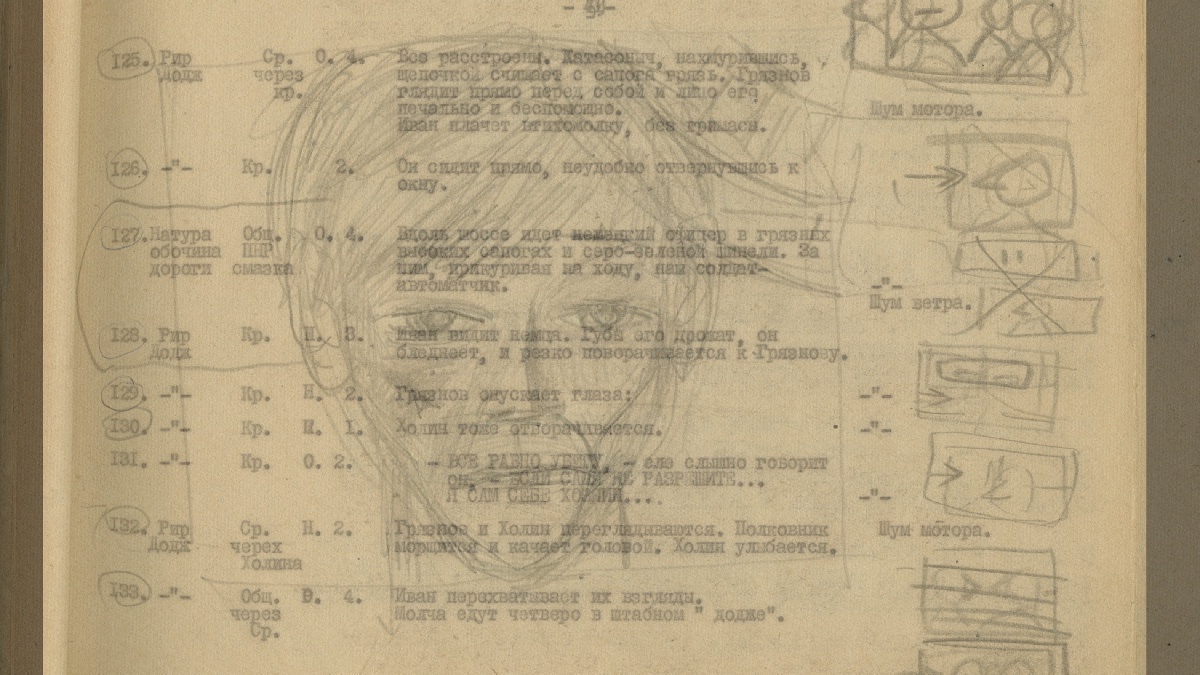 125. Рир Ср. О. 4. Все расстроены. Катасоныч, нахмурившись,
Додж через щепочкой счищает с сапога грязь. Грязнов
кр. глядит прямо перед собой и лицо его
печально и беспомощно.
Шум мотора.
Иван плачет втихомолку, без гримасы.
126. -"- Кр. 2. Он сидит прямо, неудобно отвернувшись к
окну.
127. Натура Общ. О. 4. Вдоль шоссе идет немецкий офицер в грязных
обочина ПНР высоких сапогах и серо-зеленой шинели. За
дороги смазка ним, прикуривая на ходу, наш солдат-
автоматчик.
-"-
Шум ветра.
128. Рир Кр. Н. 3. Иван видит немца. Губы его дрожат, он
Додж бледнеет, и резко поворачивается к Грязнову.
129. -"- Кр. Н. 2. Грязнов опускает глаза: -"-
130. -"- Кр. Н. 1. Холин тоже отворачивается. -"-
131. -"- Кр. О. 2. - ВСЕ РАВНО УБЕГУ, - еле слышно говорит
он, - ЕСЛИ НЕ РАЗРЕШИТЕ...
Я САМ СЕБЕ ХОЗЯИН.... -"-
132. Рир Ср. Н. 2. Грязнов и Холин переглядываются. Полковник Шум мотора.
Додж черех морщится и качает головой. Холин улыбается.
Холина
133. -"- Общ. 4. Иван перехватывает их взгляды.
через Молча едут четверо в штабном " додже".
Ср.